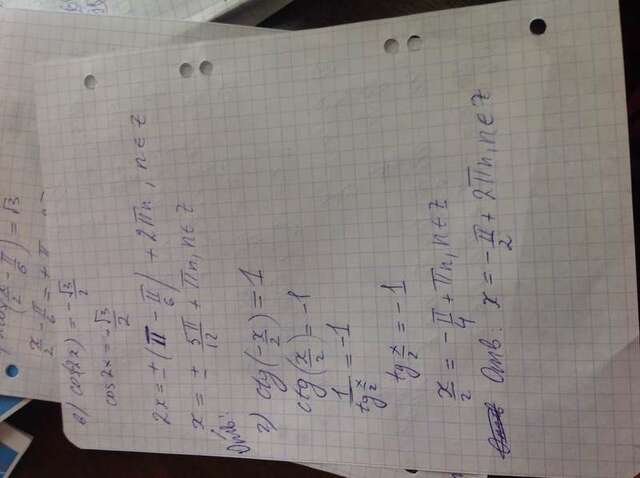 cos(x/2 - π/6) = √3
x/2 - π/6 = ± π
в) cos(2x) = -√3/2
cos2x = -√3/2
2x = ± (π - π/6) + 2πn, n ∈ Z
x = ± 5π/12 + πn, n ∈ Z
Отв:
г) ctg(-x/2) = 1
ctg(x/2) = -1
1/tg x/2 = -1
tg x/2 = -1
x/2 = -π/4 + πn, n ∈ Z
Отв. x = -π/2 + 2πn, n ∈ Z